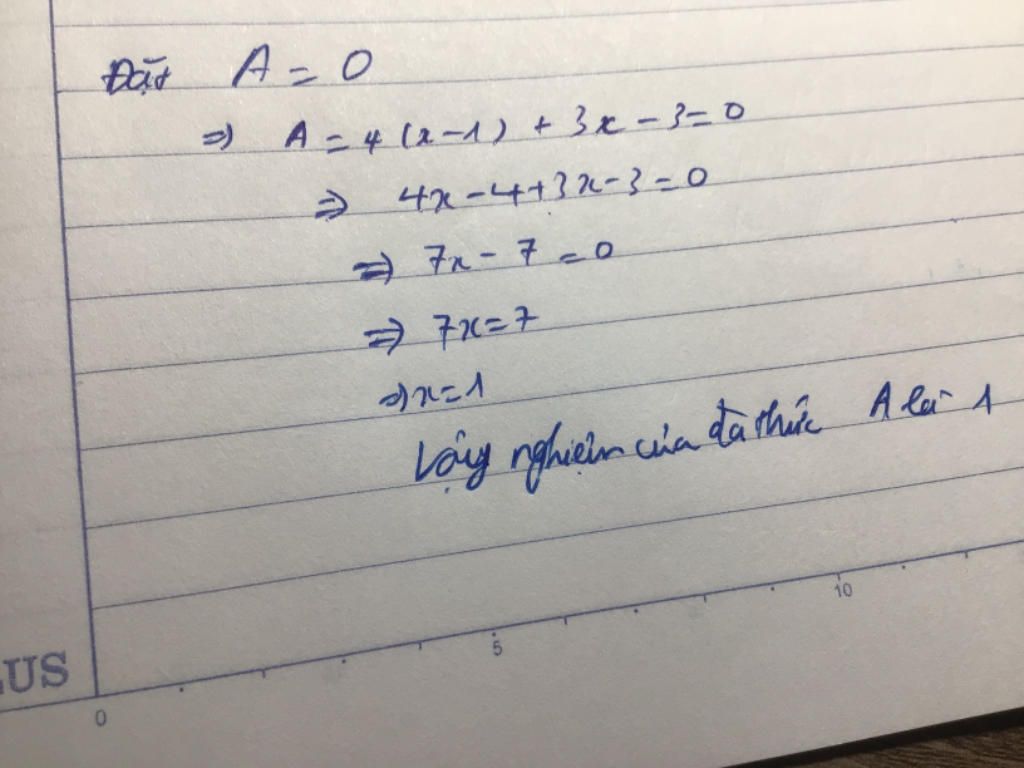 Đặt A = 0
=> A = 4(x-1) + 3x - 3 = 0
=> 4x - 4 + 3x - 3 = 0
=> 7x - 7 = 0
=> 7x = 7
=> x = 1
Vậy nghiệm của đa thức A là 1
10
5
LUS
0